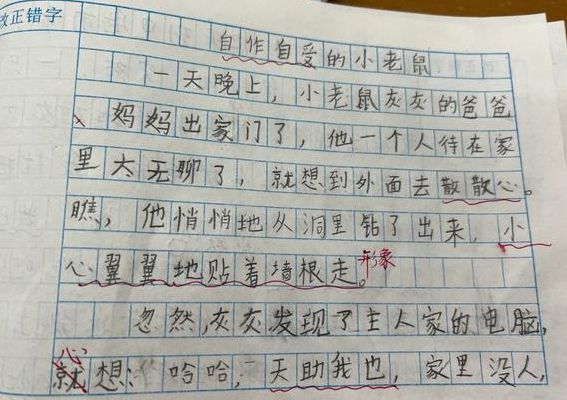 改正错字
自作自受的小老鼠
一天晚上，小老鼠灰灰的爸爸
妈妈出家门了，他一个人待在家
里太无聊了，就想到外面去散散心。
瞧，他悄悄地从洞里钻了出来，小
心翼翼地贴着墙根走。形象
忽然，灰灰发现了主人家的电脑，
心
就想：哈哈，天助我也，家里没人，